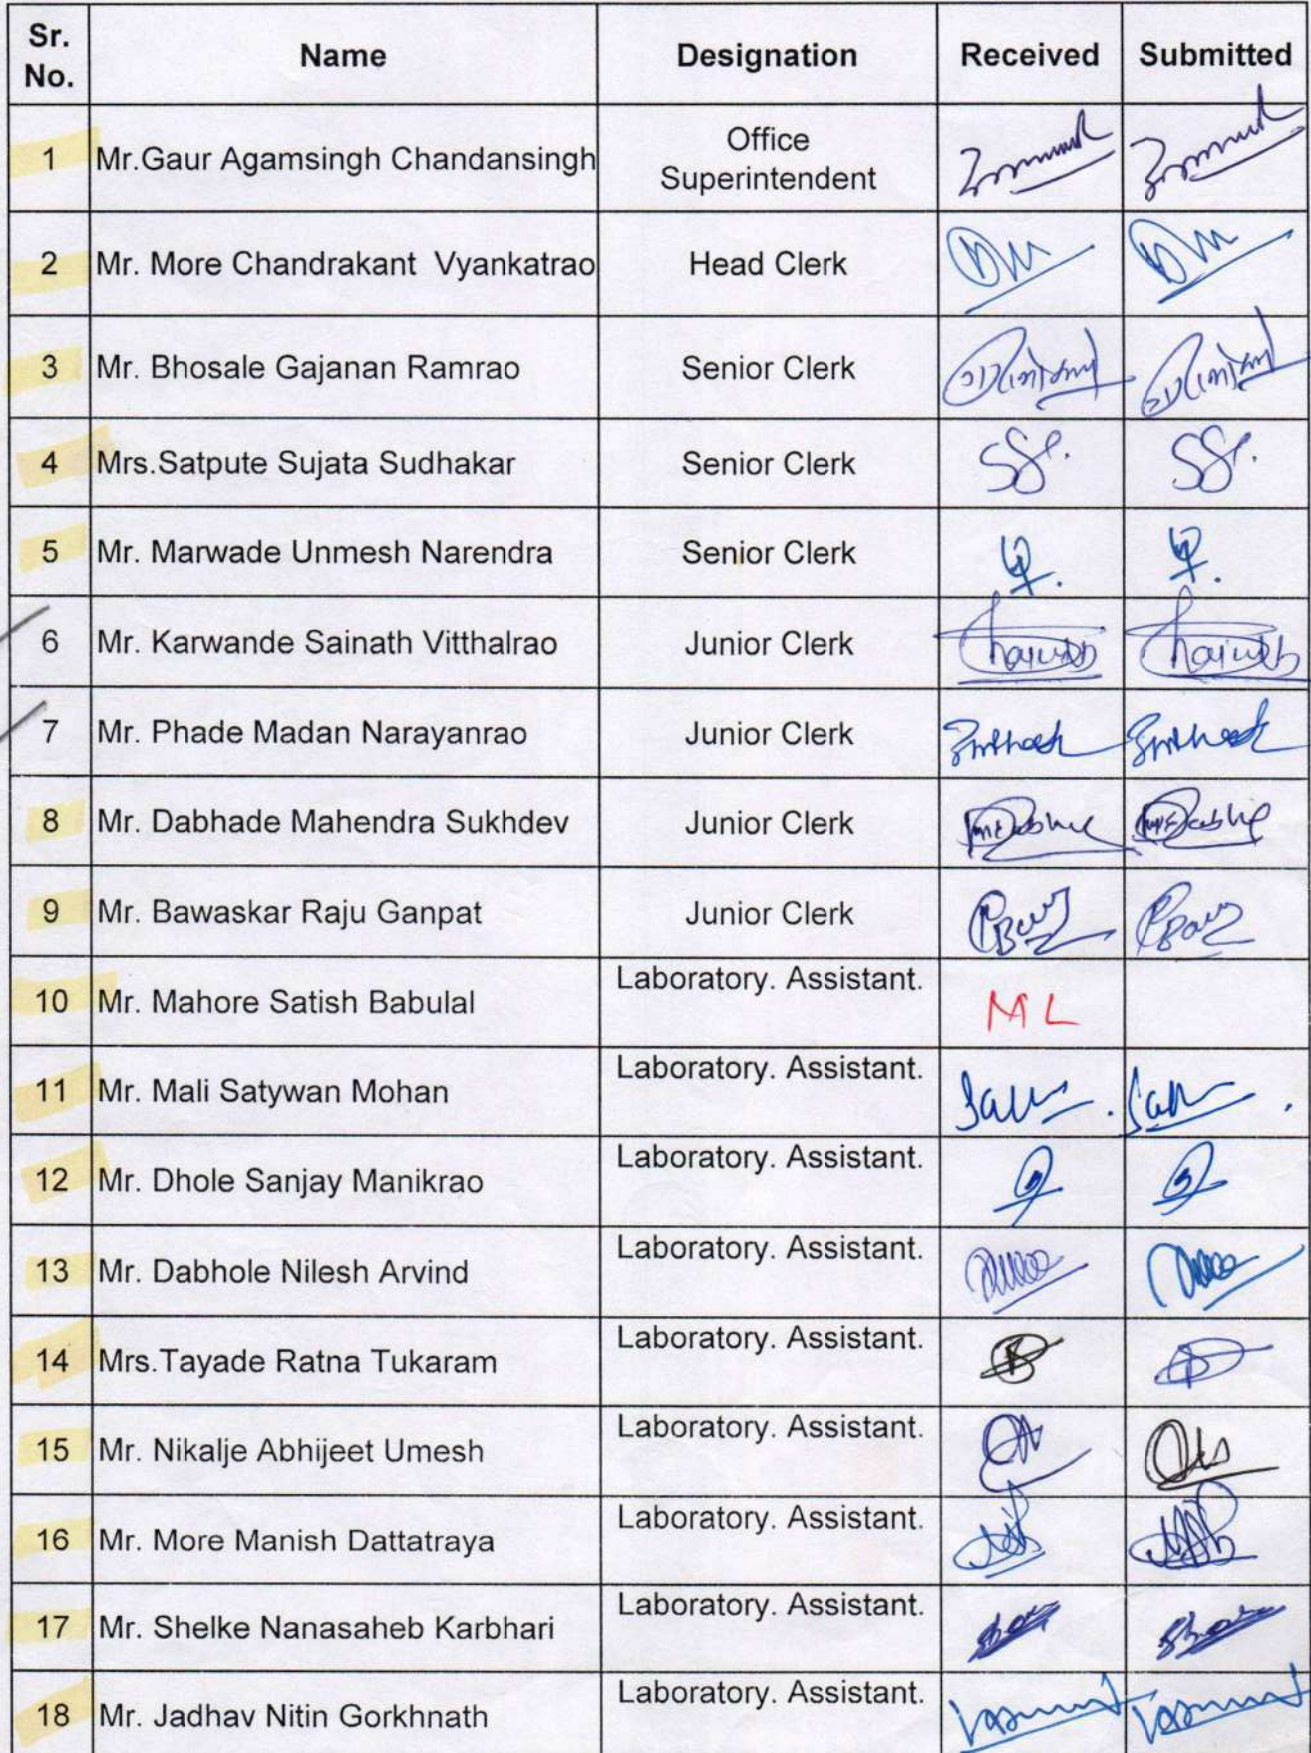 Sr. No. Name Designation Received Submitted
1 Mr.Gaur Agamsingh Chandansingh Office Superintendent
2 Mr. More Chandrakant Vyankatrao Head Clerk
3 Mr. Bhosale Gajanan Ramrao Senior Clerk
4 Mrs.Satpute Sujata Sudhakar Senior Clerk
5 Mr. Marwade Unmesh Narendra Senior Clerk
6 Mr. Karwande Sainath Vitthalrao Junior Clerk
7 Mr. Phade Madan Narayanrao Junior Clerk
8 Mr. Dabhade Mahendra Sukhdev Junior Clerk
9 Mr. Bawaskar Raju Ganpat Junior Clerk
10 Mr. Mahore Satish Babulal Laboratory. Assistant. ML
11 Mr. Mali Satywan Mohan Laboratory. Assistant.
12 Mr. Dhole Sanjay Manikrao Laboratory. Assistant.
13 Mr. Dabhole Nilesh Arvind Laboratory. Assistant.
14 Mrs.Tayade Ratna Tukaram Laboratory. Assistant.
15 Mr. Nikalje Abhijeet Umesh Laboratory. Assistant.
16 Mr. More Manish Dattatraya Laboratory. Assistant.
17 Mr. Shelke Nanasaheb Karbhari Laboratory. Assistant.
18 Mr. Jadhav Nitin Gorkhnath Laboratory. Assistant.